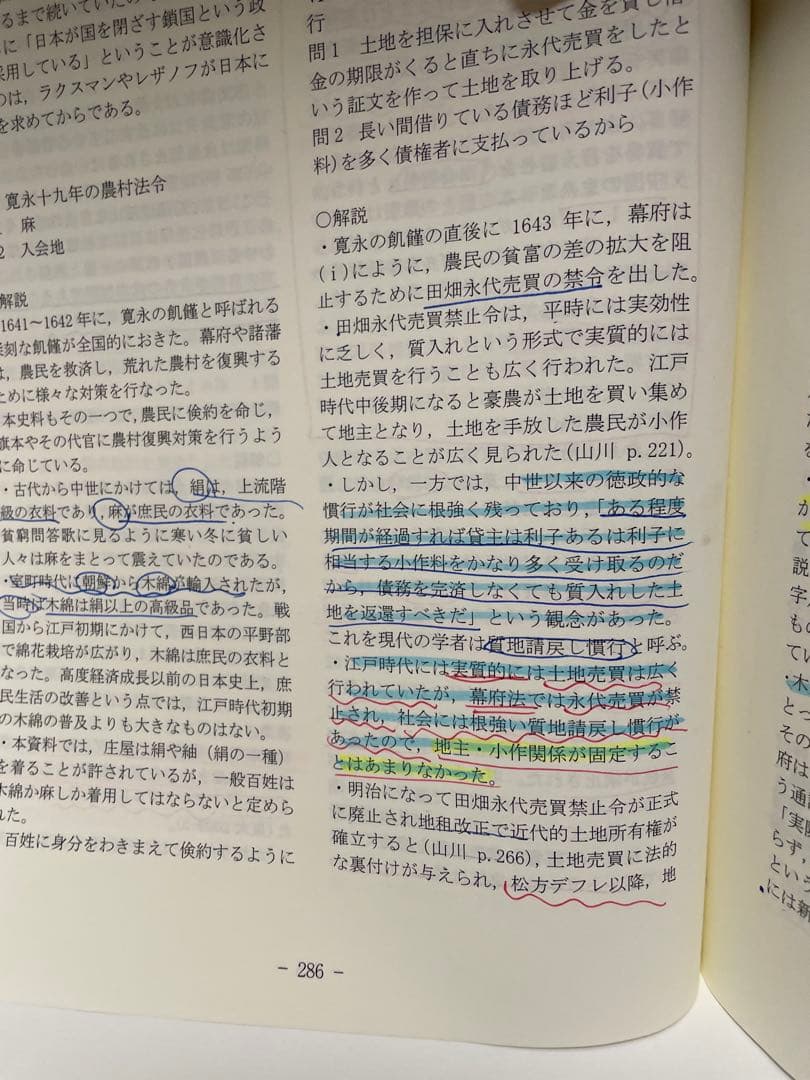 るまで続いていた
に「日本が国を閉ざす鎖国という政
採用している」ということが意識化さ
のは，ラクスマンやレザノフが日本に
を求めてからである。
寛永十九年の農村法令
麻
2 入会地
解説
1641～1642年に，寛永の飢饉と呼ばれる
刻な飢饉が全国的におきた。幕府や諸藩
は，農民を救済し，荒れた農村を復興する
ために様々な対策を行なった。
本史料もその一つで，農民に倹約を命じ，
旗本やその代官に農村復興対策を行うよう
に命じている。
・古代から中世にかけては，絹は，上流階
級の衣料であり，麻が庶民の衣料であった。
貧窮問答歌に見るように寒い冬に貧しい
人々は麻をまとって震えていたのである。
・室町時代に朝鮮から木綿が輸入されたが，
当時は木綿は絹以上の高級品であった。戦
国から江戸初期にかけて，西日本の平野部
で綿花栽培が広がり，木綿は庶民の衣料と
なった。高度経済成長以前の日本史上，庶
民生活の改善という点では，江戸時代初期
の木綿の普及よりも大きなものはない。
・本資料では，庄屋は絹や紬（絹の一種）
を着ることが許されているが，一般百姓は
木綿か麻しか着用してはならないと定めら
れた。
百姓に身分をわきまえて倹約するように
行
問1 土地を担保に入れさせて金を貸し借
金の期限がくると直ちに永代売買をしたと
いう証文を作って土地を取り上げる。
問2 長い間借りている債務ほど利子(小作
料)を多く債権者に支払っているから
○解説
・寛永の飢饉の直後に 1643 年に，幕府は
(i)にように，農民の貧富の差の拡大を阻
止するために田畑永代売買の禁令を出した。
・田畑永代売買禁止令は，平時には実効性
に乏しく，質入れという形式で実質的には
土地売買を行うことも広く行われた。江戸
時代中後期になると豪農が土地を買い集め
て地主となり，土地を手放した農民が小作
人となることが広く見られた(山川 p.221)。
・しかし，一方では，中世以来の徳政的な
慣行が社会に根強く残っており，「ある程度
期間が経過すれば貸主は利子あるは利子に
相当する小作料をかなり多く受け取るのだ
から，債務を完済しなくても質入れした土
地を返還すべきだ」という観念があった。
これを現代の学者は質地請戻し慣行と呼ぶ。
・江戸時代には実質的には土地売買は広く
行われていたが，幕府法では永代売買が禁
止され，社会には根強い質地請戻し慣行が
あったので，地主・小作関係が固定するこ
とはあまりなかった。
・明治になって田畑永代売買禁止令が正式
に廃止され地租改正で近代的土地所有権が
確立すると(山川 p.266)，土地売買に法的
な裏付けが与えられ，松方デフレ以降，地
- 286 -